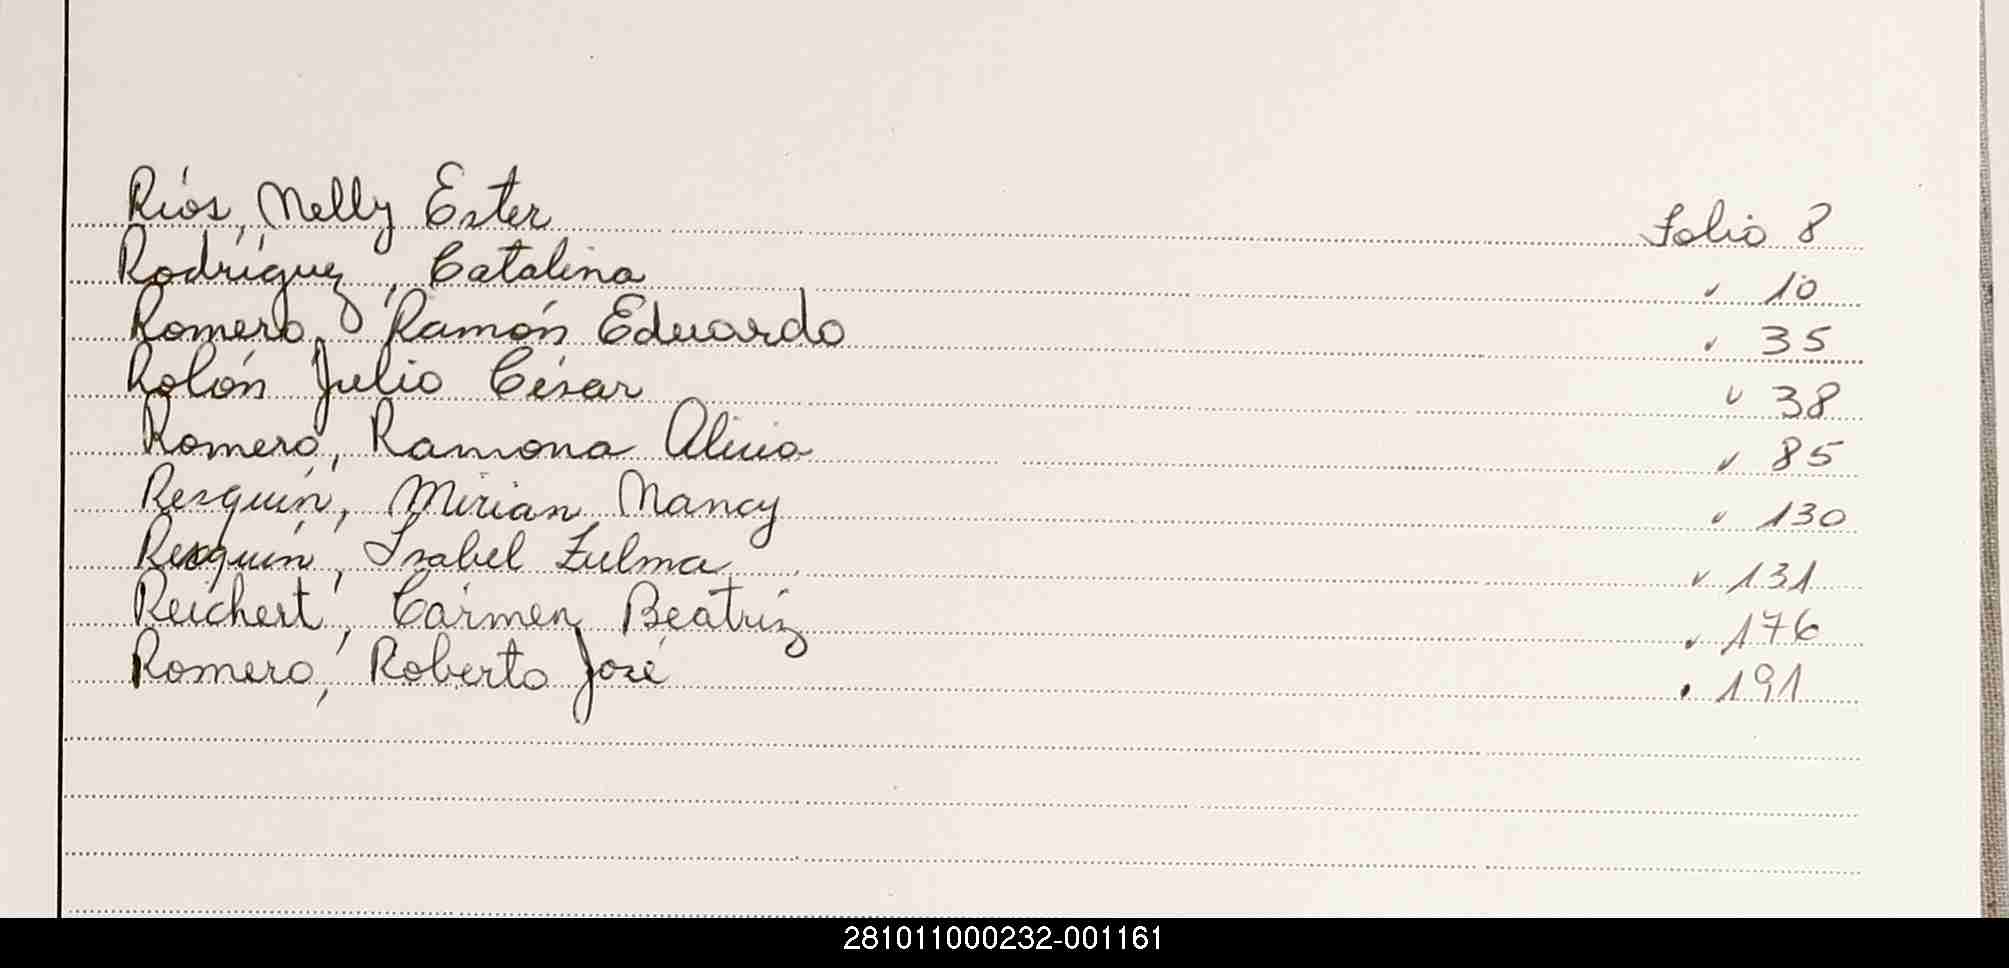 Ríos, Nelly Ester Folio 8
Rodríguez, Catalina " 10
Romero, Ramón Eduardo " 35
Rolón Julio César " 38
Romero, Ramona Alicia " 85
Resquín, Mirian Nancy " 130
Resquín, Isabel Zulma " 131
Reichert, Carmen Beatriz " 176
Romero, Roberto José " 191
281011000232-001161